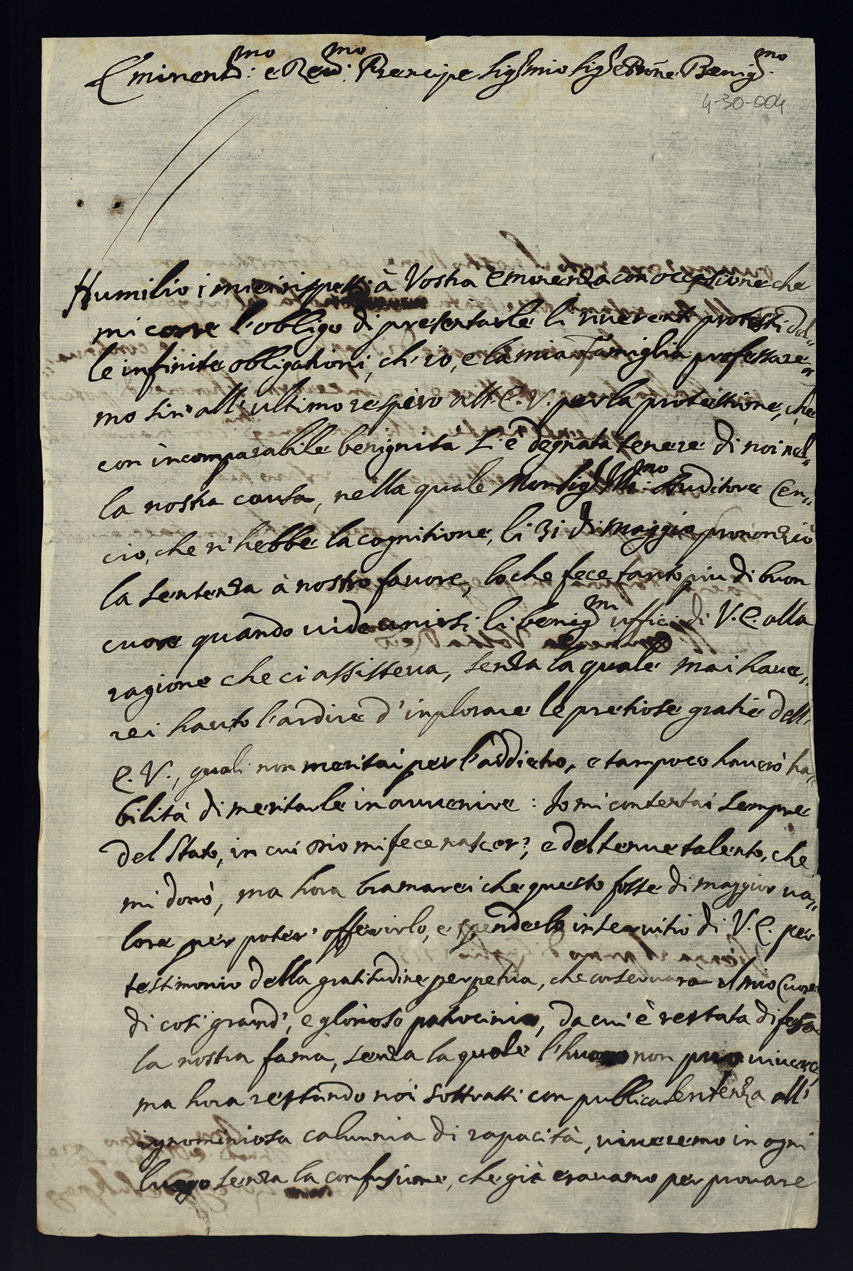 Eminent.mo e Rev.mo Prencipe Sig.r mio Sig.r e Prōne Benig.mo
4-30-004
Humilio i miei rispetti à Vostra Eminenza con occasione che
mi corre l'obligo di presentarle li riverenti protesti del„
le infinite obligationi, ch'io, e la mia Famiglia professare„
mo sin' all'ultimo respiro all'E.V. per la protettione, che
con incomparabile benignità s'è degnata tenere di noi nel„
la nostra causa, nella quale Monsig.r Ill.mo Auditore Cen„
cio, che n'hebbe la cognitione, li 31 di maggio prononziò
la sentenza à nostro favore, lo che fece tanto più di buon
cuore quando vide unirsi li benig.mi uffici di V.E. alla
ragione che ci assisteva, senza la quale mai have„
rei hauto l'ardire d'inplorare le pretiose gratie dell'
E.V., quali non meritai per l'addietro, e tampoco haverò ha„
bilità di meritarle in avvenire: Io mi contentai sempre
del stato, in cui Dio mi fece nascer', e del tenue talento, che
mi donò, ma hora bramarei che questo fosse di maggior va„
lore per poter' offerirlo, e spenderlo in servitio di V.E. per
testimonio della gratitudine perpetua, che conservarà il mio Cuore
di così grand', e glorioso patrocinio, da cui è restata difesa
la nostra fama, senza la quale l'huomo non può vivere,
ma hora restando noi sottratti con publica sentenza all'
ignominiosa calunnia di rapacità, viveremo in ogni
luogo senza la confusione, che già eravamo per provare